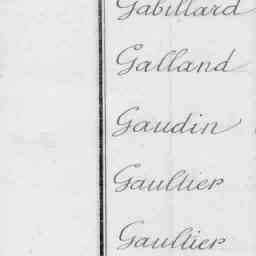 Gabillard
Galland
Gaudin
Gaultier
Gaultier